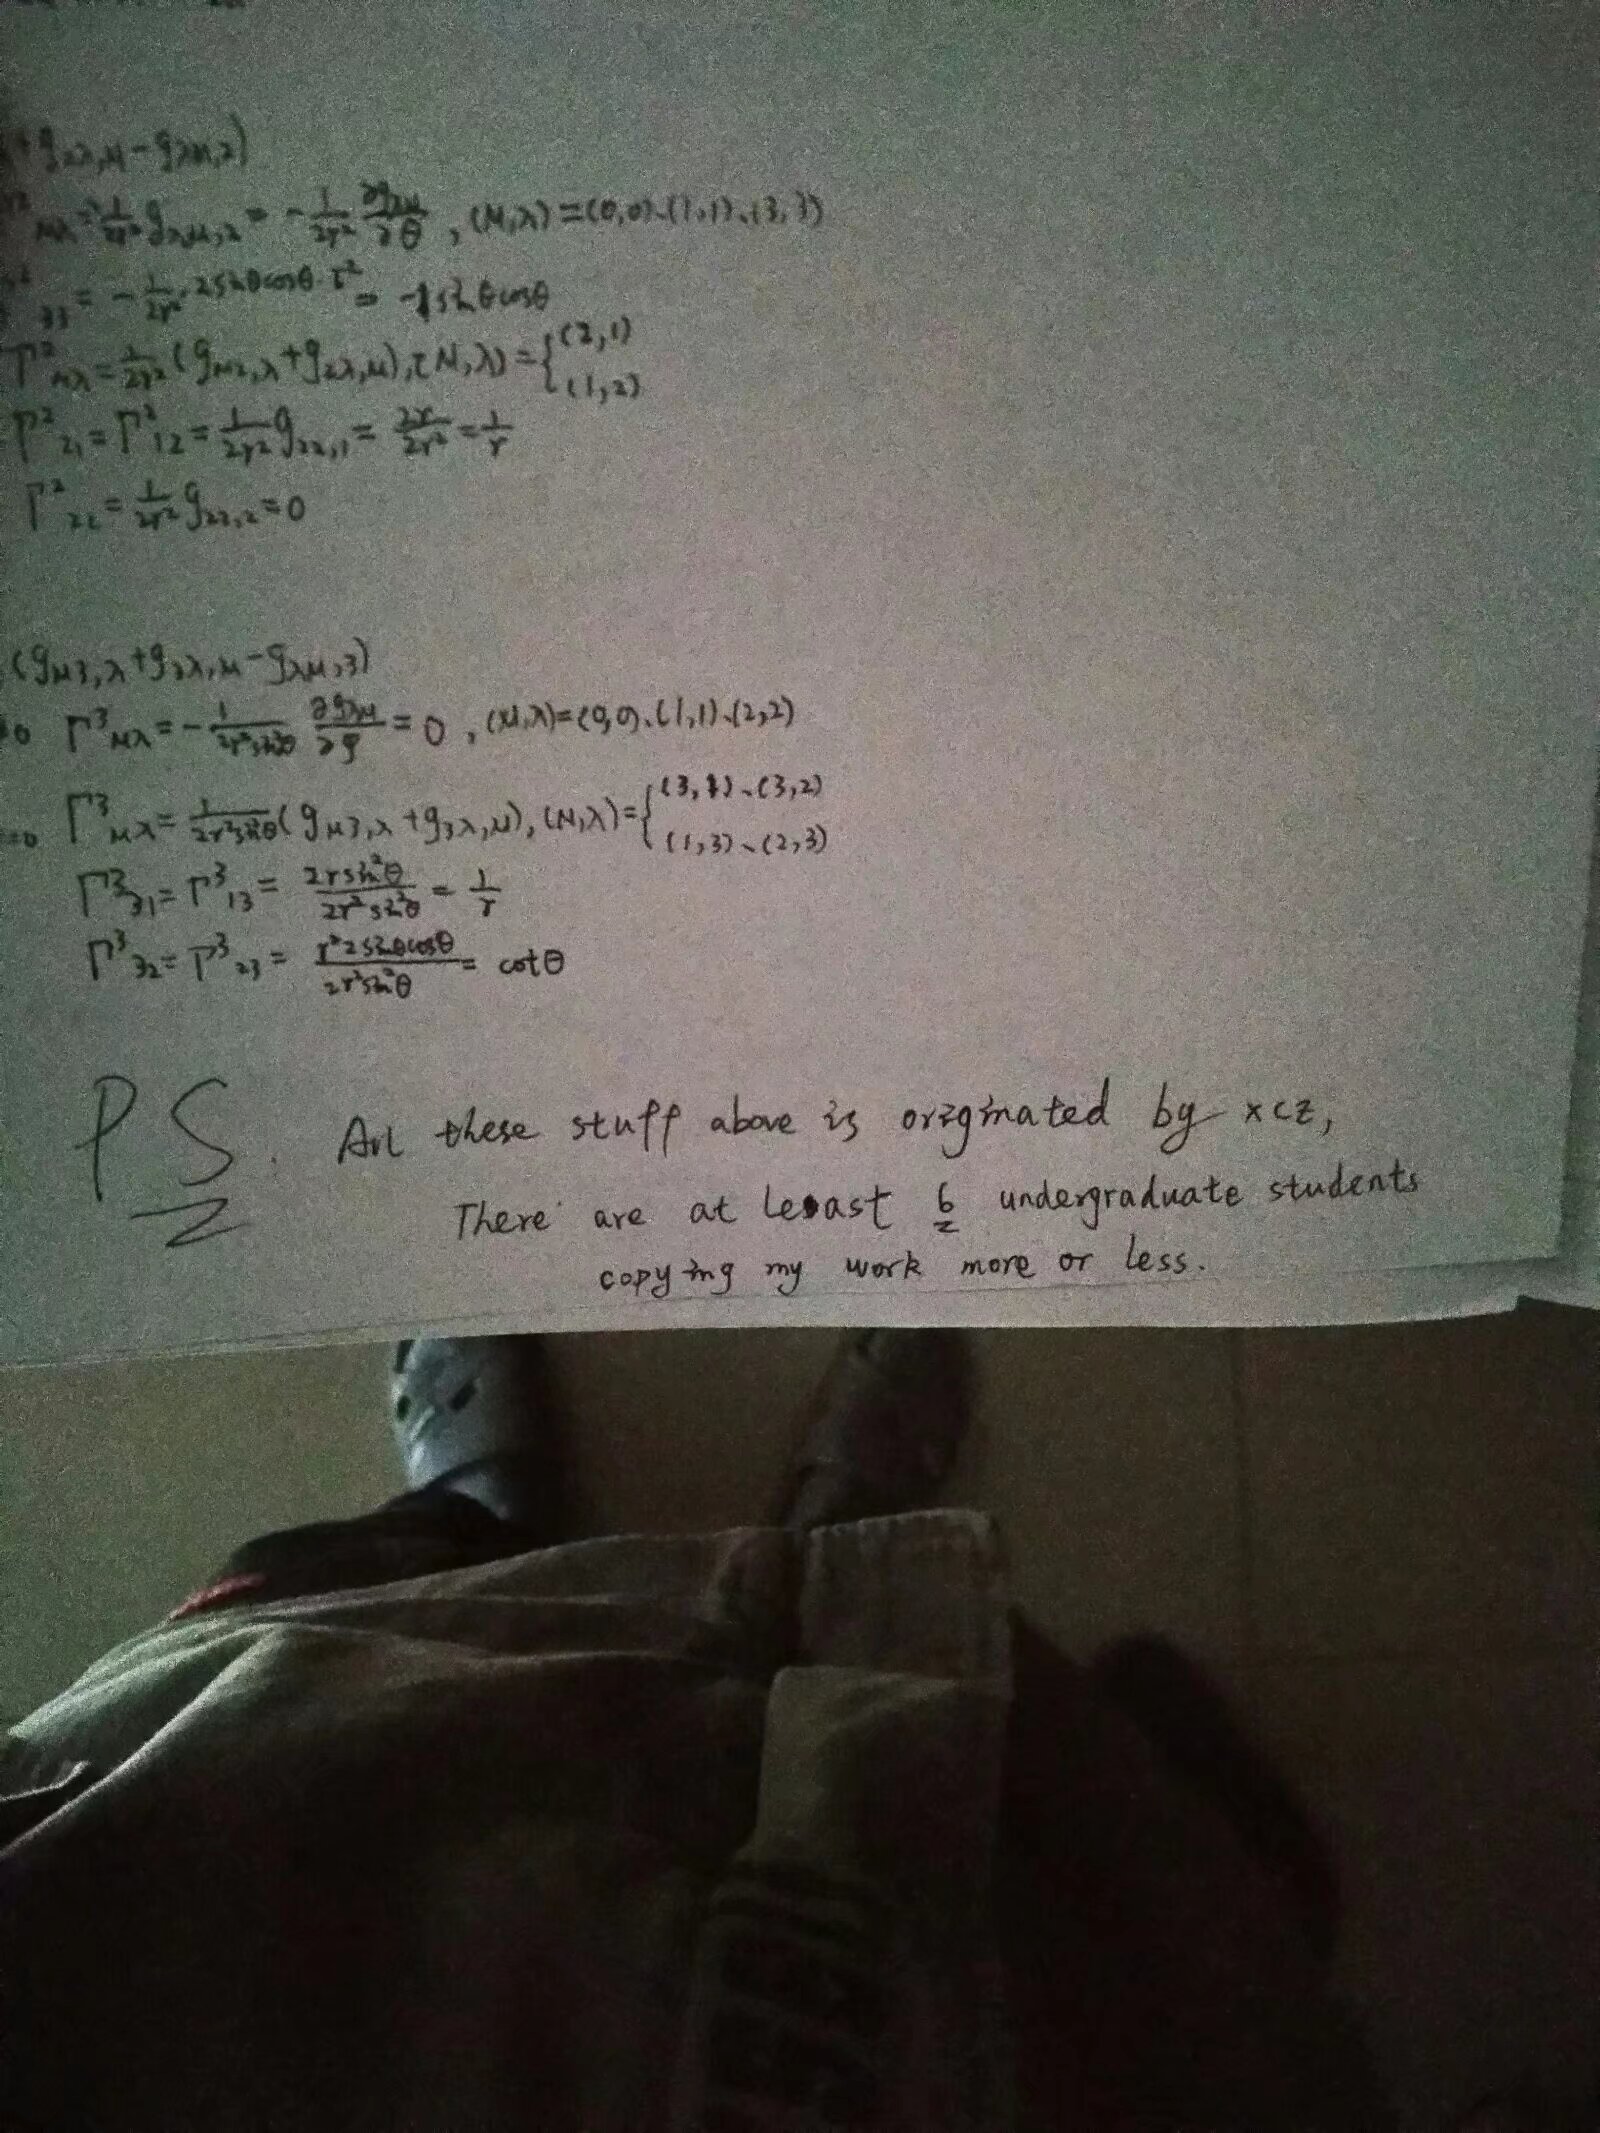 +g₂λ,μ-gλμ,2)
μλ = 1/2r² gλμ,2 = -1/2r² ∂gλμ/∂θ , (μ,λ)=(0,0)、(1,1)、(3,3)
33 = -1/2r² · 2sinθcosθ · r² = -1sinθcosθ
Γ²μλ = 1/2r² (gμ2,λ+g2λ,μ), (μ,λ)={(2,1) (1,2)
Γ²21 = Γ²12 = 1/2r² g22,1 = 2r/2r² = 1/r
Γ²22 = 1/2r² g22,2 = 0
(gμ3,λ+g3λ,μ-gλμ,3)
0 Γ³μλ = -1/2r²sin²θ ∂gλμ/∂φ = 0 , (μ,λ)=(0,0)、(1,1)、(2,2)
=0 Γ³μλ = 1/2r²sin²θ (gμ3,λ+g3λ,μ), (μ,λ)={(3,1)、(3,2) (1,3)、(2,3)
Γ³31 = Γ³13 = 2rsin²θ/2r²sin²θ = 1/r
Γ³32 = Γ³23 = r²2sinθcosθ/2r²sin²θ = cotθ
PS. All these stuff above is originated by xcz,
There are at least 6 undergraduate students
copying my work more or less.